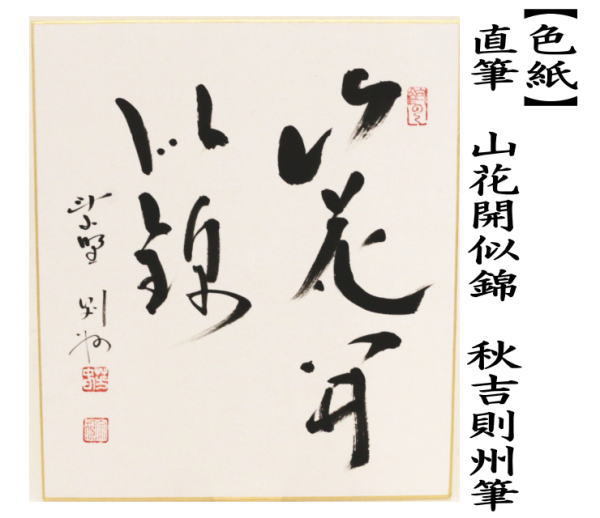 【色紙】
直筆 山花開似錦 秋吉則州筆
山花開
似錦
紫野 則州